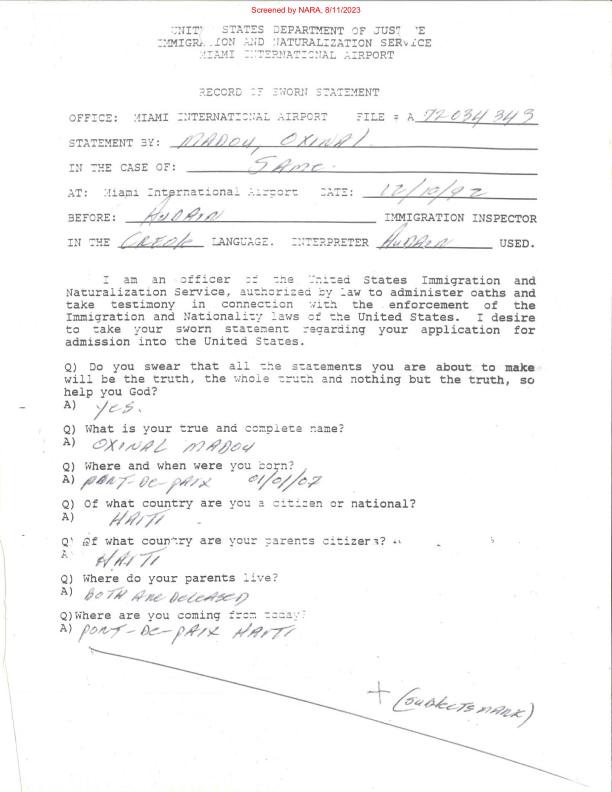 Screened by NARA, 8/11/2023
UNITED STATES DEPARTMENT OF JUSTICE
IMMIGRATION AND NATURALIZATION SERVICE
MIAMI INTERNATIONAL AIRPORT
RECORD OF SWORN STATEMENT
OFFICE: MIAMI INTERNATIONAL AIRPORT FILE # A 72034343
STATEMENT BY: MADOU, OXINAL
IN THE CASE OF: SAME.
AT: Miami International Airport DATE: 12/10/92
BEFORE: AUDAIN IMMIGRATION INSPECTOR
IN THE CREOLE LANGUAGE. INTERPRETER AUDAIN USED.
I am an officer of the United States Immigration and
Naturalization Service, authorized by law to administer oaths and
take testimony in connection with the enforcement of the
Immigration and Nationality laws of the United States. I desire
to take your sworn statement regarding your application for
admission into the United States.
Q) Do you swear that all the statements you are about to make
will be the truth, the whole truth and nothing but the truth, so
help you God?
A) YES.
Q) What is your true and complete name?
A) OXINAL MADOU
Q) Where and when were you born?
A) PORT-DE-PAIX 01/01/07
Q) Of what country are you a citizen or national?
A) HAITI
Q) Of what country are your parents citizens?
A) HAITI
Q) Where do your parents live?
A) BOTH ARE DECEASED
Q)Where are you coming from today?
A) PORT-DE-PAIX HAITI
+ (SUBJECTS MARK)